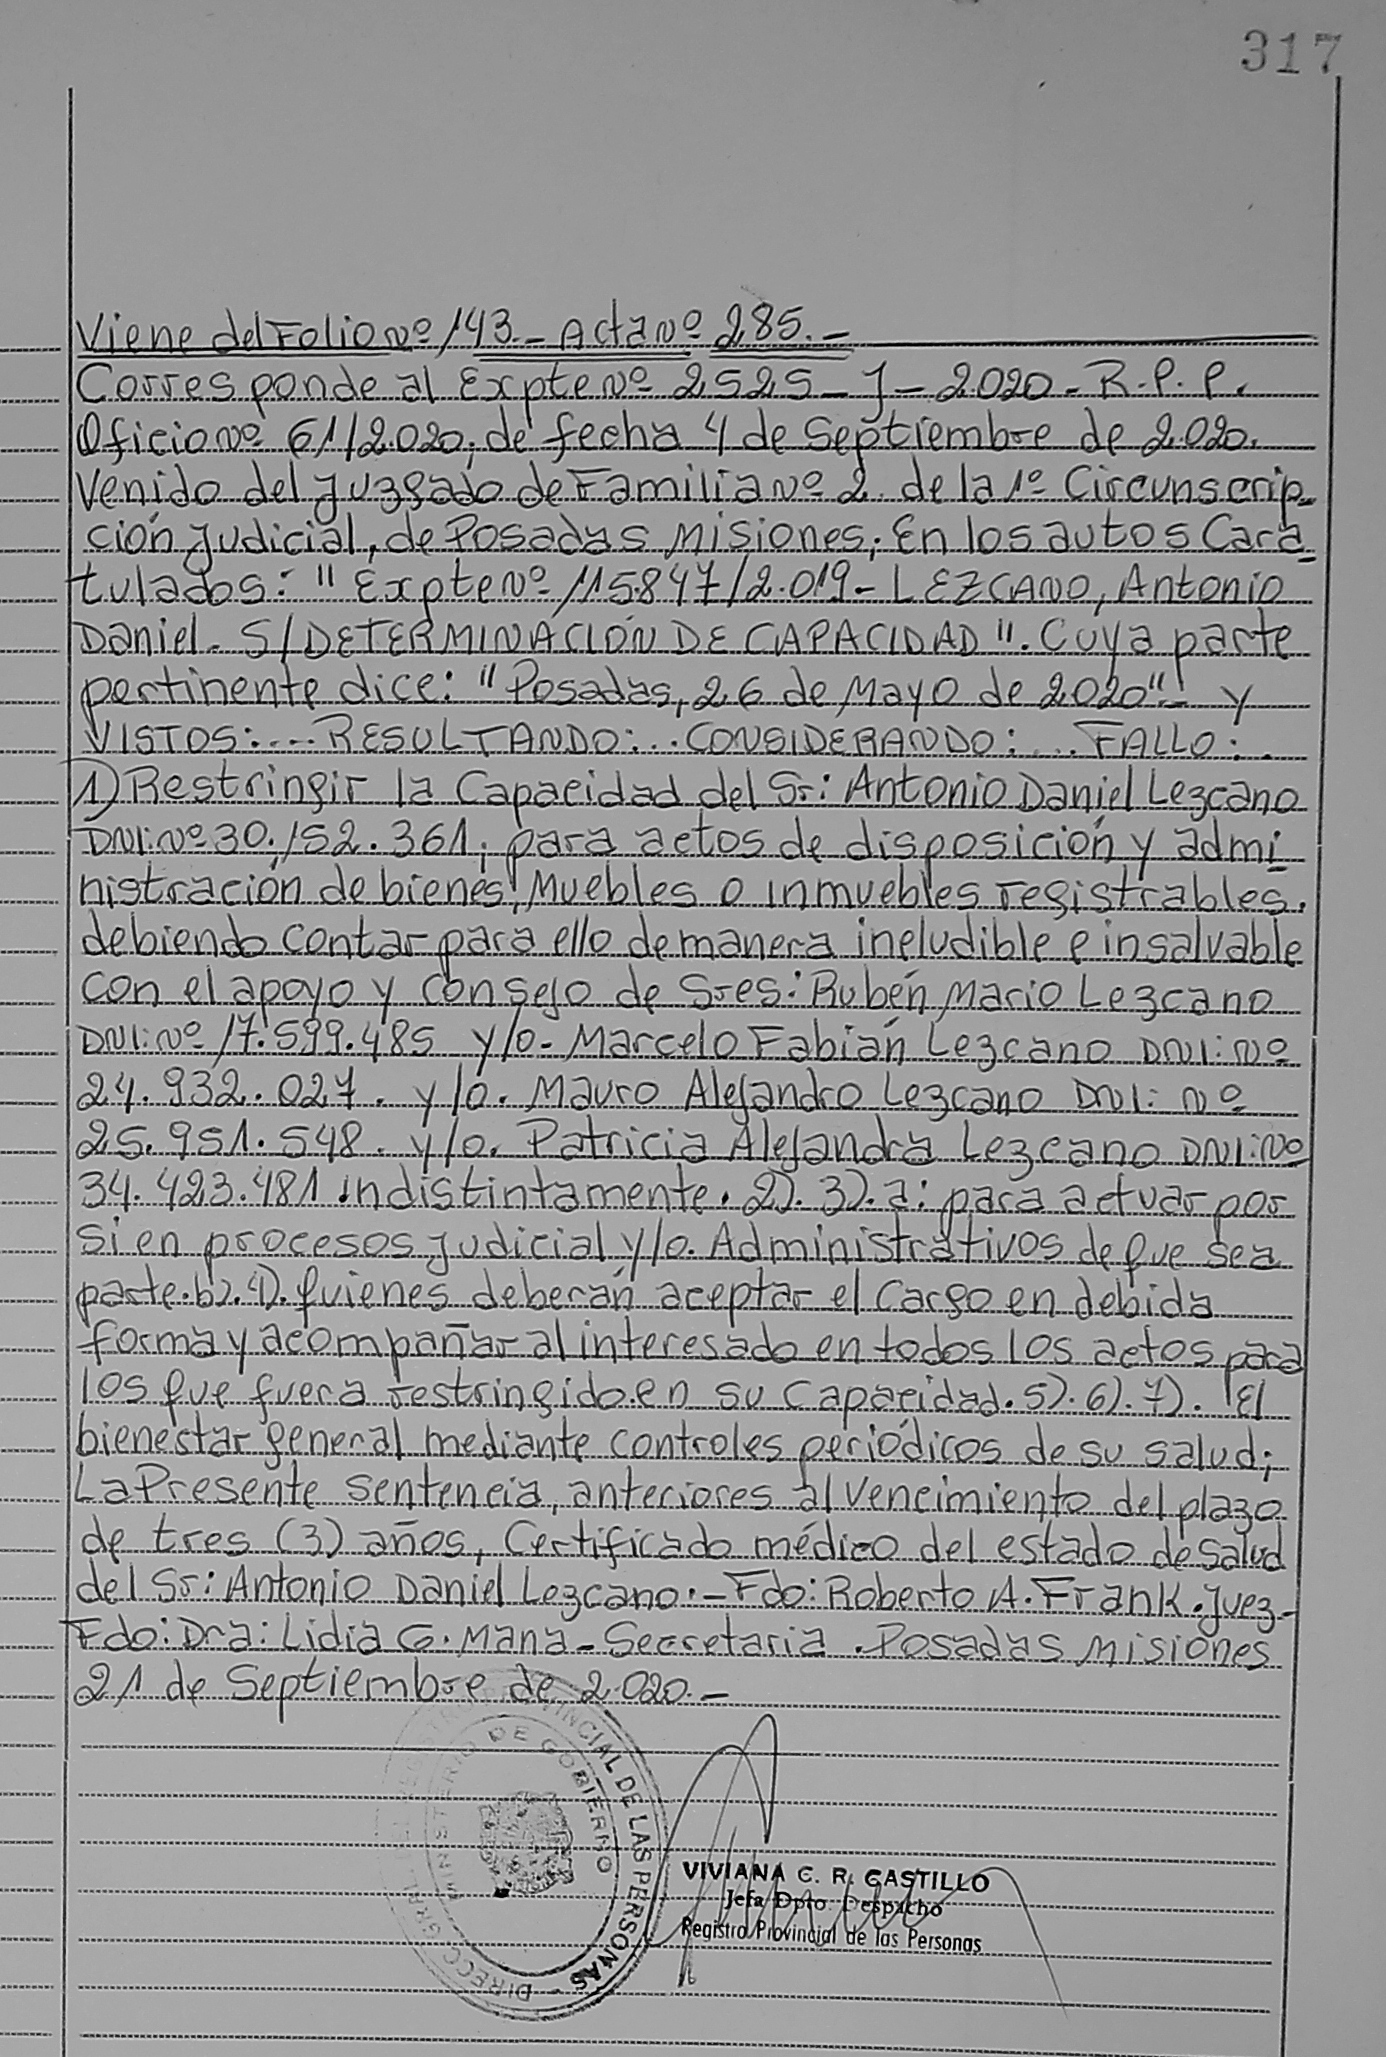 317
Viene del Folio Nº 143.- Acta Nº 285.-
Corresponde al Expte Nº 2525-J-2020-R.P.P.
Oficio Nº 61/2.020, de fecha 4 de Septiembre de 2.020.
Venido del Juzgado de Familia Nº 2 de la 1º Circunscrip-
ción Judicial, de Posadas Misiones; En los autos Cara-
tulados: "Expte Nº 115.847/2.019- LEZCANO, Antonio
Daniel. S/DETERMINACIÓN DE CAPACIDAD". Cuya parte
pertinente dice: "Posadas, 26 de Mayo de 2020".- y
VISTOS:... RESULTANDO:... CONSIDERANDO:... FALLO:.
1) Restringir la Capacidad del Sr: Antonio Daniel Lezcano
DNI: Nº 30.152.361, para actos de disposición y admi
nistración de bienes, Muebles o inmuebles registrables,
debiendo contar para ello de manera ineludible e insalvable
con el apoyo y Consejo de Sres: Rubén Mario Lezcano
DNI: Nº 17.599.485 y/o- Marcelo Fabián Lezcano DNI: Nº
24.932.027. y/o. Mauro Alejandro Lezcano DNI: Nº
25.951.548. y/o. Patricia Alejandra Lezcano DNI: Nº
34.423.481 indistintamente. 2). 3). a: para actuar por
si en procesos judicial y/o. Administrativos de que sea
parte. b). 4). quienes deberán aceptar el Cargo en debida
forma y acompañar al interesado en todos los actos para
los que fuera restringido en su Capacidad. 5). 6). 7). El
bienestar general mediante controles periódicos de su salud;
La Presente Sentencia, anteriores al vencimiento del plazo
de tres (3) años, Certificado médico del estado de Salud
del Sr: Antonio Daniel Lezcano.- Fdo: Roberto A. Frank. Juez-
Fdo: Dra: Lidia G. Mana- Secretaria. Posadas Misiones
21 de Septiembre de 2.020.-
DIRECC. GRAL. DEL REGISTRO PROVINCIAL DE LAS PERSONAS -
MINISTERIO DE GOBIERNO
VIVIANA C. R. CASTILLO
Jefa Dpto. Despacho
Registro Provincial de las Personas